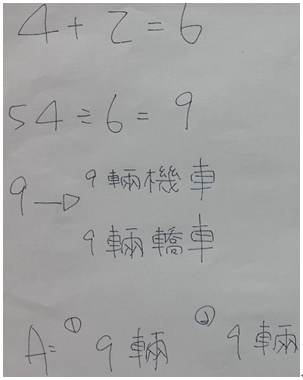 4+2=6
54÷6=9
9→9輛機車
9輛轎車
A=① 9輛 ② 9輛